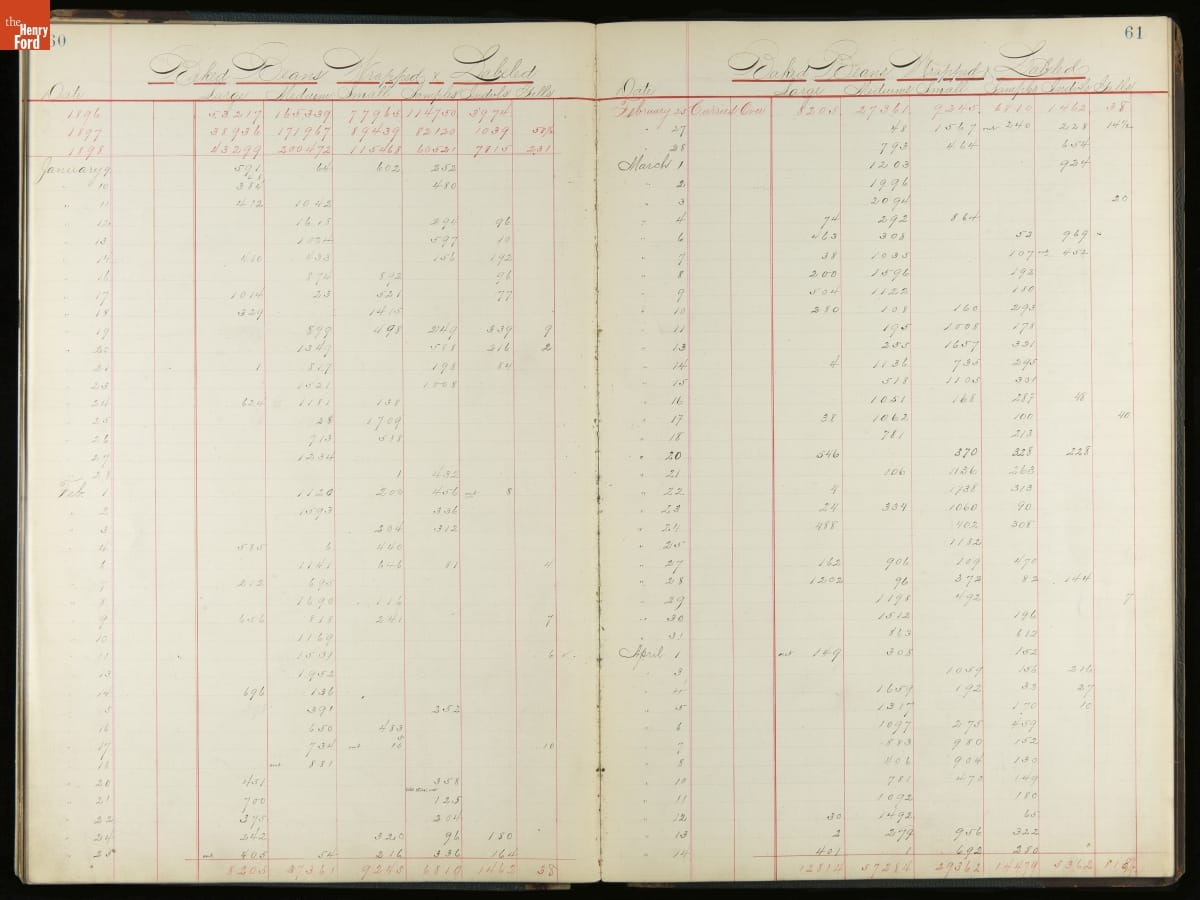 the Henry Ford
60
Baked Beans Wrapped & Labeled
Date Large Medium Small Samples Individ Hlls
1896 53217 165339 77965 114750 3974
1897 38936 171967 89439 82120 1039 50½
1898 43299 200472 115468 60521 7815 231
January 9 591 64 602 252
" 10 384 480
" 11 472 1042
" 12 1618 294 96
" 13 1024 597 19
" 14 410 433 156 192
" 16 874 892 96
" 17 1014 23 521 77
" 18 329 1415
" 19 899 498 249 339 9
" 20 1349 588 216 2
" 21 1 817 198 84
" 23 1521 1008
" 24 624 1181 138
" 25 28 1709
" 26 713 538
" 27 1234
" 28 1 432
Feb. 1 1120 200 456 8
" 2 1593 336
" 3 204 312
" 4 585 6 440
" 6 1141 646 81 4
" 7 212 695
" 8 1690 116
" 9 656 818 241 7
" 10 1169
" 11 1531 6
" 13 1952
" 14 696 136
" 15 391 252
" 16 650 483
" 17 734 10
" 18 881
" 20 451 358
" 21 700 125
" 22 375 204
" 24 242 320 96 180
" 25 405 54 216 336 164
8205 27361 9245 6810 1462 38
61
Baked Beans Wrapped & Labeled
Date Large Mediums Small Samples Individ Hlls
February 25 Carried Over 8205 27361 9245 6810 1462 38
" 27 48 1567 240 228 14½
" 28 793 464 654
March 1 1203 924
" 2 1996
" 3 2094 20
" 4 74 292 864
" 6 463 308 53 969
" 7 38 1035 107 452
" 8 200 1596 192
" 9 504 1122 180
" 10 280 108 160 293
" 11 195 1008 178
" 13 255 1657 331
" 14 4 1136 735 295
" 15 518 1105 301
" 16 1051 168 287 48
" 17 38 1062 100 40
" 18 781 213
" 20 546 370 328 228
" 21 106 1136 263
" 22 4 1738 313
" 23 24 334 1060 90
" 24 488 402 308
" 25 1182
" 27 162 906 109 470
" 28 1202 96 372 82 144
" 29 1198 492 7
" 30 1512 196
" 31 863 612
April 1 149 308 152
" 3 1059 156 216
" 4 1659 192 33 27
" 5 1317 170 10
" 6 1097 275 459
" 7 883 980 152
" 8 406 904 130
" 10 781 470 149
" 11 1092 180
" 12 30 1492 65
" 13 2 279 956 322
" 14 401 1 692 280
12814 57284 29362 14479 5362